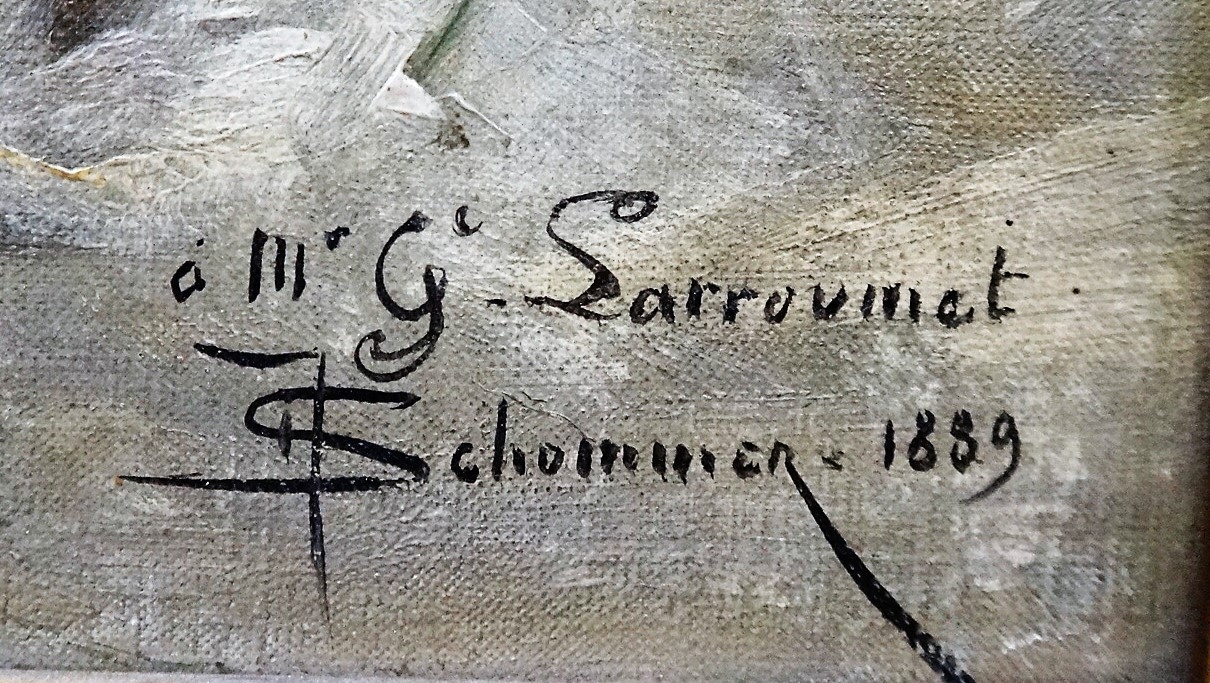 à Mr Ge. Larroumet.
F Schommer. 1889